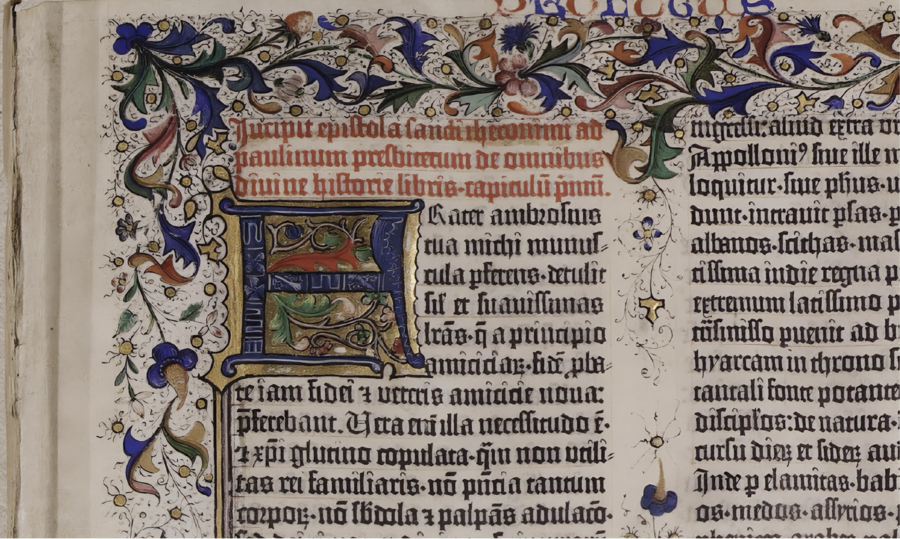 Incipit epistola sancti iheronimi ad
paulinum presbiterum de omnibus
divine historie libris·capitulū p̄mū.
Frater ambrosius
tua michi munus-
cula p̄ferens·detulit
sil̄ et suavissimas
lr̄as·q̄ a principio
amiciciaꝝ·fidē ꝓba-
te iam fidei ⁊ veteris amicicie nova:
p̄ferebant. Vera em̄ illa necessitudo ē·
⁊ xp̄i glutino copulata·qm̄ non utili-
tas rei familiaris·nō p̄ntia tantum
corporꝝ·nō sb̄dola ⁊ palpās adulacō·
nigressi: aliud extra
Appolloniꝰ sive ille
loquitur·sive ph̄us·
dunt·intravit p̱sas·
albanos·scithas·
tissima indie regna
extremum latissimo
trāsmisso pervenit ad
hyarcam in throno
tantali fonte
discipl̄os: de natura·
cursu dieꝝ et sideꝝ
Inde ꝑ elamitas·
os·medos·assyrios·